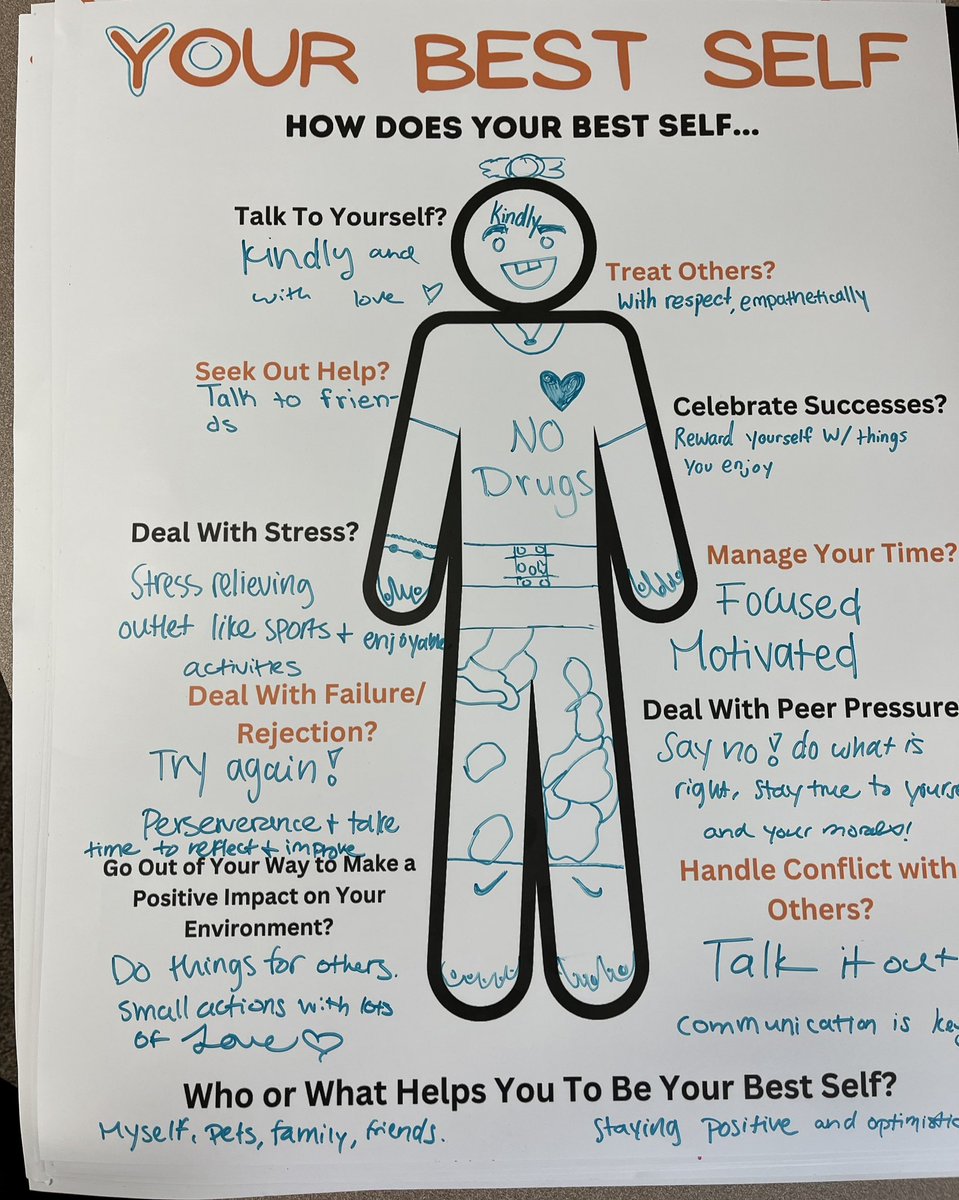 YOUR BEST SELF
HOW DOES YOUR BEST SELF...
Talk To Yourself?
kindly and
with love
Kindly
Treat Others?
With respect, empathetically
Seek Out Help?
Talk to frien-
ds
NO
Drugs
Celebrate Successes?
Reward yourself w/ things
you enjoy
Deal With Stress?
Stress relieving
outlet like sports + enjoyable
activities
Manage Your Time?
Focused
Motivated
Deal With Failure/
Rejection?
Try again!
Perserverance + take
time to reflect + improve
Deal With Peer Pressure
Say no! do what is
right, stay true to yourse
and your morals!
Go Out of Your Way to Make a
Positive Impact on Your
Environment?
Do things for others.
Small actions with lots
of Love
Handle Conflict with
Others?
Talk it out
communication is key
Who or What Helps You To Be Your Best Self?
Myself, pets, family, friends.
Staying positive and optimistic